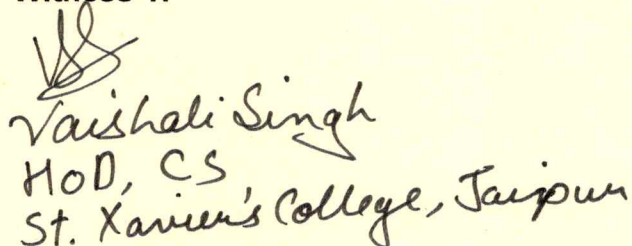 Vaishali Singh
HOD, CS
St. Xavier's College, Jaipur